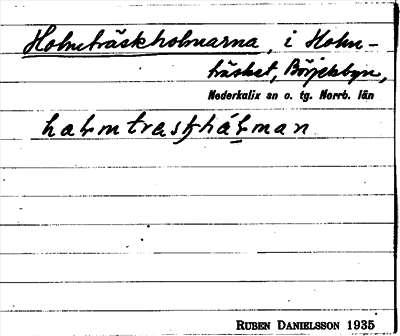 Holmträskholmarna, i Holm-
träsket, Börjelsbyn,
Nederkalix sn o. tg. Norrb. län
RUBEN DANIELSSON 1935